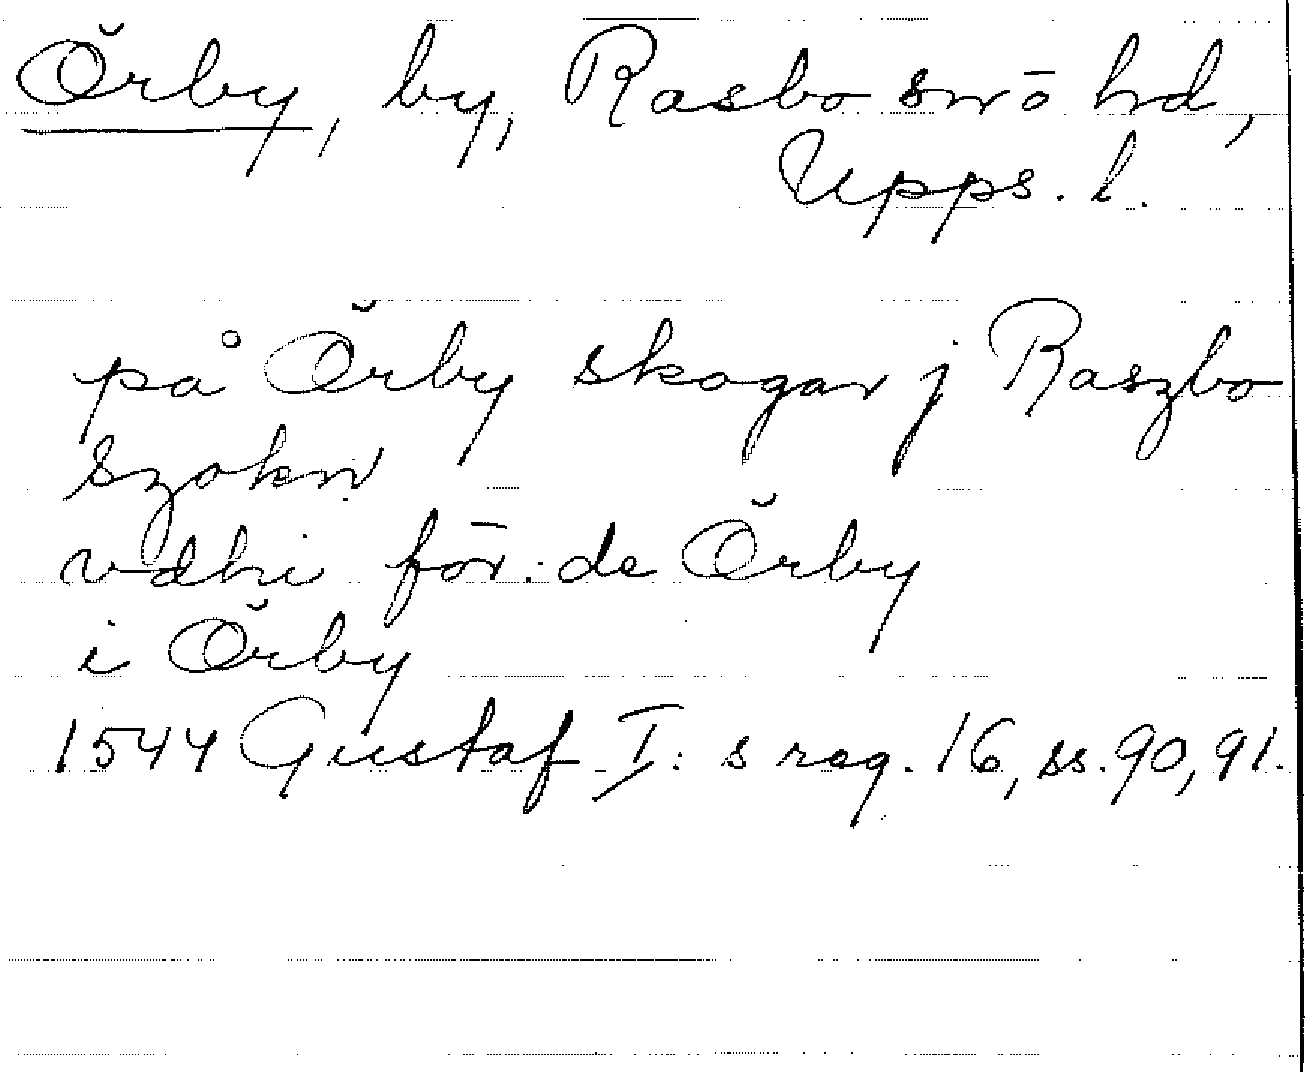 Örby, by, Rasbo sn o hd,
Upps. l.
på Örby skogar j Raszbo
szokn
vdhi för:de Örby
i Örby
1544 Gustaf I:s reg. 16, ss. 90, 91.